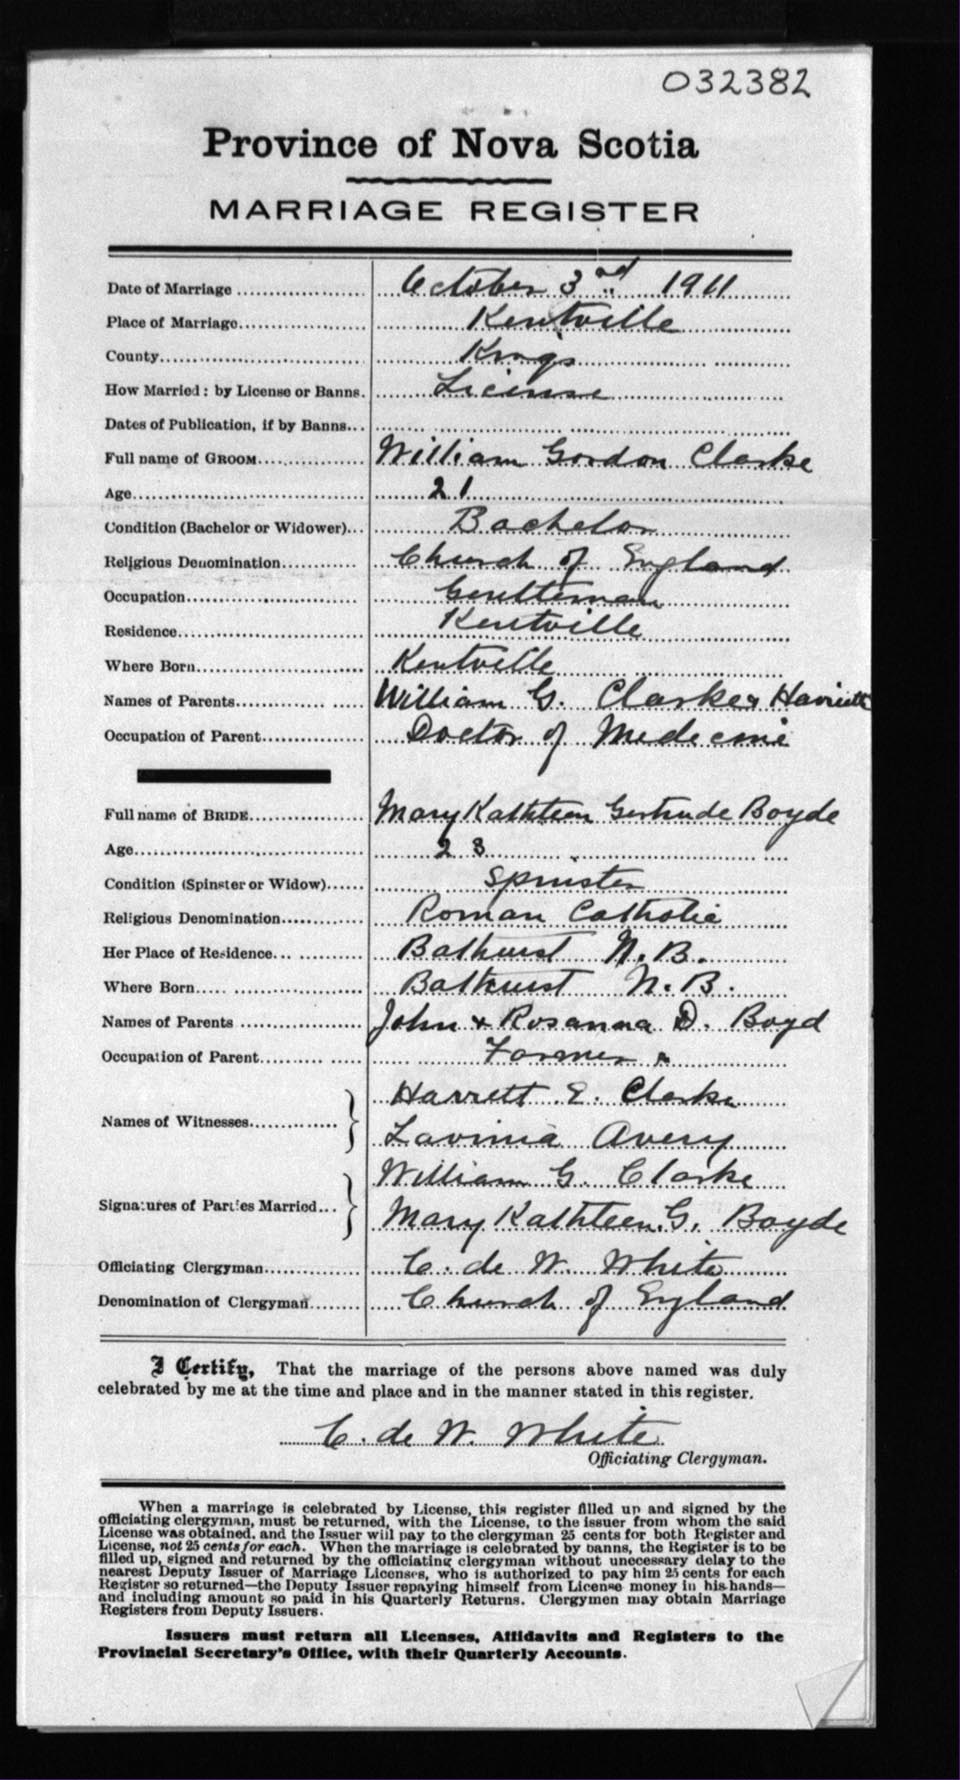 032382
Province of Nova Scotia
MARRIAGE REGISTER
Date of Marriage October 3rd 1911
Place of Marriage Kentville
County Kings
How Married: by License or Banns. License
Dates of Publication, if by Banns
Full name of GROOM William Gordon Clarke
Age 21
Condition (Bachelor or Widower) Bachelor
Religious Denomination Church of England
Occupation Gentleman
Residence Kentville
Where Born Kentville
Names of Parents William G. Clarke & Harriett
Occupation of Parent Doctor of Medecine
Full name of BRIDE Mary Kathleen Gertrude Boyde
Age 23
Condition (Spinster or Widow) Spinster
Religious Denomination Roman Catholic
Her Place of Residence Bathurst N.B.
Where Born Bathurst N.B.
Names of Parents John & Rosanna D. Boyd
Occupation of Parent Farmer
Names of Witnesses Harrett E. Clarke
Lavinia Avery
Signatures of Parties Married William G. Clarke
Mary Kathleen G. Boyde
Officiating Clergyman C. de W. White
Denomination of Clergyman Church of England
I Certify, That the marriage of the persons above named was duly
celebrated by me at the time and place and in the manner stated in this register.
C. de W. White
Officiating Clergyman.
When a marriage is celebrated by License, this register filled up and signed by the
officiating clergyman, must be returned, with the License, to the issuer from whom the said
License was obtained, and the Issuer will pay to the clergyman 25 cents for both Register and
License, not 25 cents for each. When the marriage is celebrated by banns, the Register is to be
filled up, signed and returned by the officiating clergyman without unecessary delay to the
nearest Deputy Issuer of Marriage Licenses, who is authorized to pay him 25 cents for each
Register so returned—the Deputy Issuer repaying himself from License money in his hands—
and including amount so paid in his Quarterly Returns. Clergymen may obtain Marriage
Registers from Deputy Issuers.
Issuers must return all Licenses, Affidavits and Registers to the
Provincial Secretary's Office, with their Quarterly Accounts.